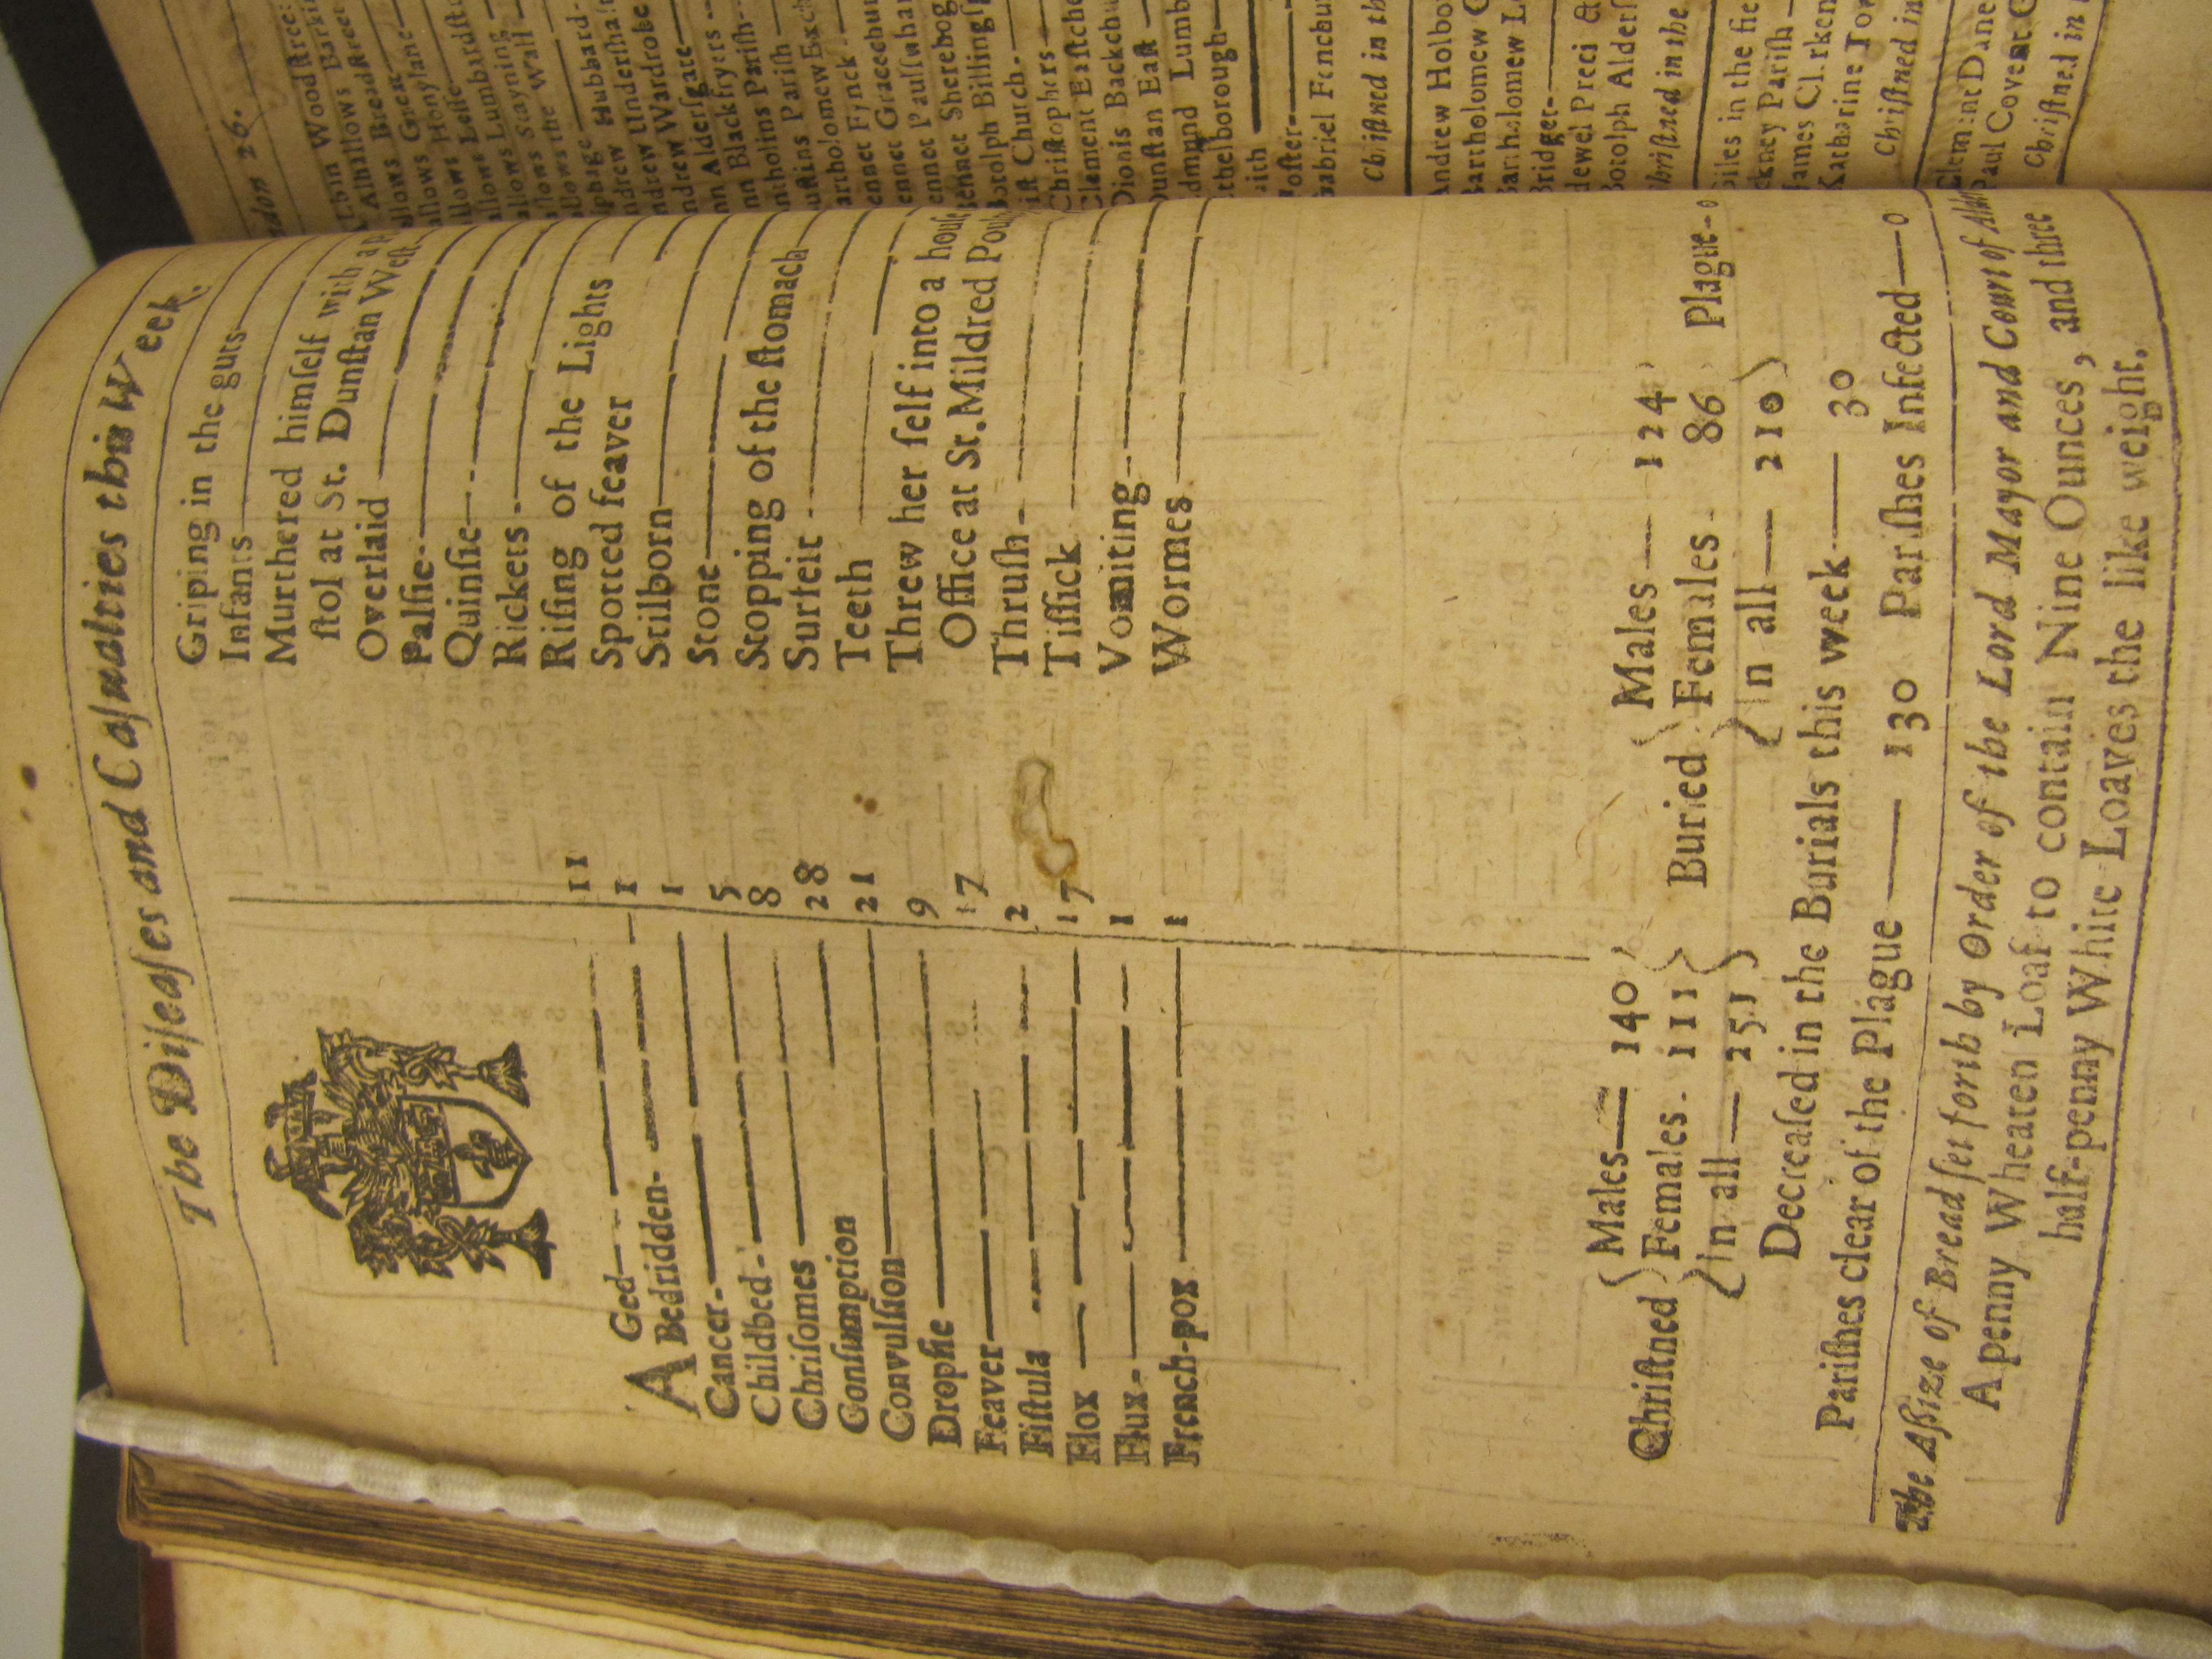 The Diſeaſes and Caſualties this Week.
AGed 11
Bedridden 1
Cancer 1
Childbed 5
Chriſomes 8
Conſumption 28
Convulſion 21
Dropſie 9
Feaver 17
Fiſtula 2
Flox 17
Flux 1
French-pox 1
Griping in the guts
Infants
Murthered himſelf with a
ſtol at St. Dunſtan Weſt
Overlaid
Palſie
Quinſie
Rickets
Riſing of the Lights
Spotted feaver
Stilborn
Stone
Stopping of the ſtomach
Surfeit
Teeth
Threw her ſelf into a houſe
Office at St. Mildred
Thruſh
Tiſſick
Vomiting
Wormes
Chriſtned { Males — 140
Females. 111
In all — 251 }
Buried { Males — 124
Females. 86
In all — 210 }
Plague — 0
Decreaſed in the Burials this week — 30
Pariſhes clear of the Plague — 130 Pariſhes Infected — 0
The Aſſize of Bread ſet forth by Order of the Lord Mayor and Court of
A penny Wheaten Loaf to contain Nine Ounces, and three
half-penny White Loaves the like weight.
26.
Woodſtreet
Alhallows Breadſtreet
Great
Honylane
Leſſe
Lumbardſt
Stayning
the Wall
Hubbard
Underſhaft
Andrew Wardrobe
Alderſgate
Ann Blackfryers
Antholins Pariſh
Auſtins Pariſh
Bartholomew Exch
Bennet Fynck
Bennet Gracechur
Bennet Paulſwhar
Bennet Sherehog
Botolph Billingſ
Church
Chriſtophers
Clement Eaſtche
Dionis Backchu
Dunſtan Eaſt
Edmund Lumb
Ethelborough
Faith
Foſter
Gabriel Fenchur
Chriſtned in th
Andrew Holbo
Bartholomew G
Bartholomew L
Bridget
Bridewel Preci
Botolph Alderſ
Chriſtned in the
Giles in the fie
Hackney Pariſh
James Clerken
Katharine Tow
Chriſtned in
Clement Dane
Paul Covent G
Chriſtned in